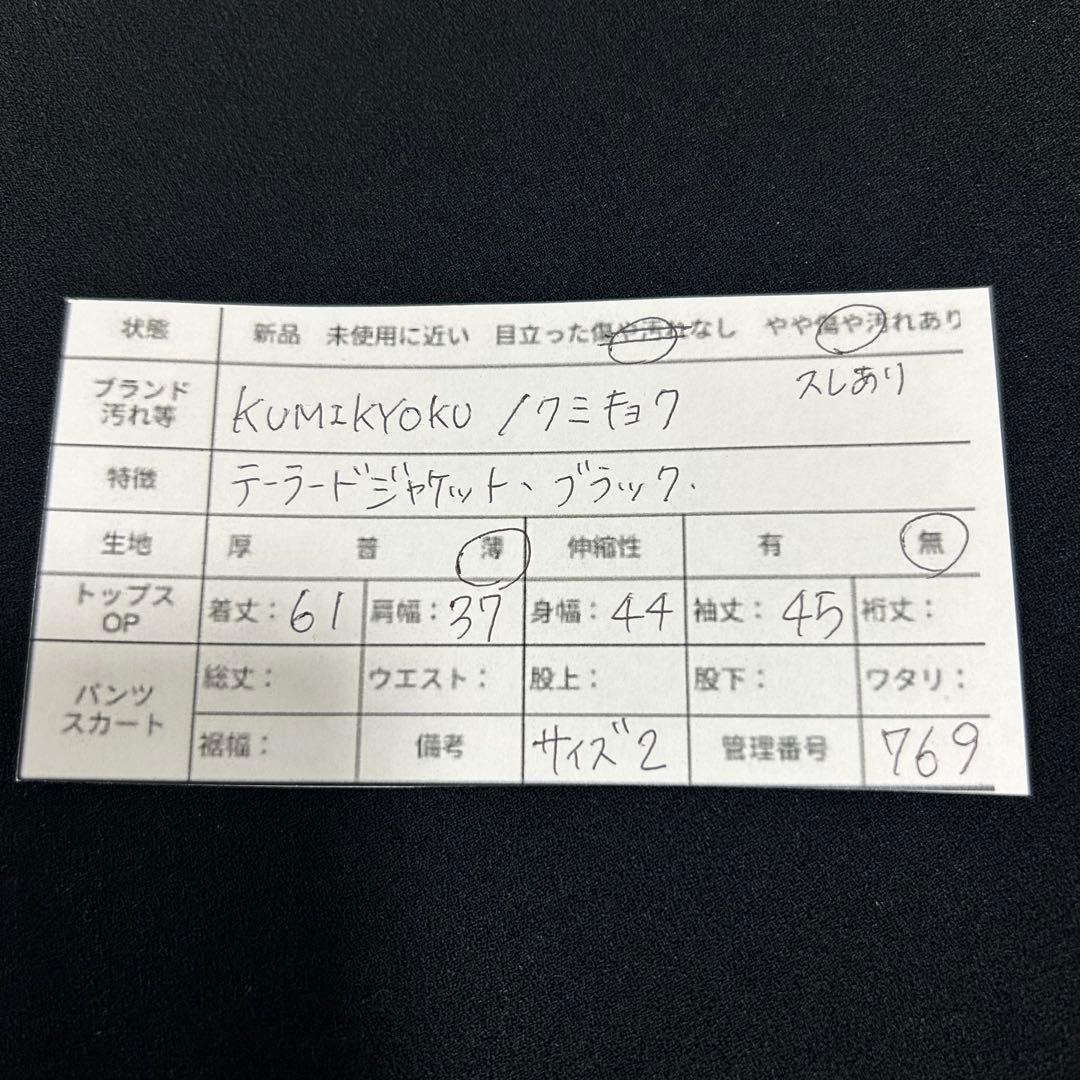 状態 新品 未使用に近い 目立った傷や汚れなし やや傷や汚れあり
ブランド 汚れ等 KUMIKYOKU / クミキョク スレあり
特徴 テーラードジャケット、ブラック.
生地 厚 普 薄 伸縮性 有 無
トップス OP 着丈：61 肩幅：37 身幅：44 袖丈：45 裄丈：
パンツ スカート 総丈： ウエスト： 股上： 股下： ワタリ：
裾幅： 備考 サイズ2 管理番号 769